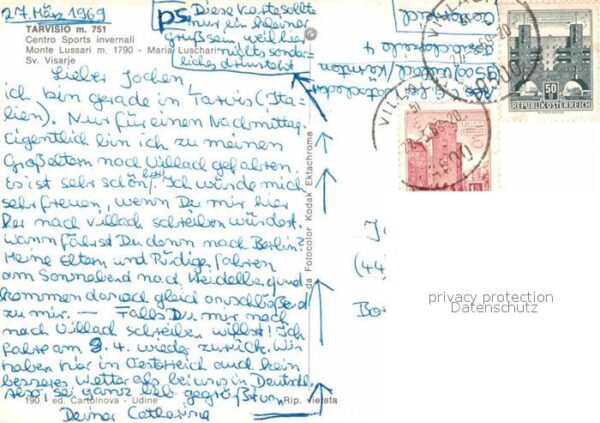 27. März 1969
TARVISIO m. 751
Centro Sports invernali
Monte Lussari m. 1790 - Maria Luschari
Sv. Visarje
ps Diese Karte sollte
nur ein kleiner
Gruß sein weil hier
nichts sonder-
liches drinsteht
Lieber Jochen,
ich bin gerade in Tarvis (Ita-
lien). Nur für einen Nachmittag.
Eigentlich bin ich zu meinen
Großeltern nach Villach gefahren.
Es ist sehr schön hier! Ich würde mich
sehr freuen, wenn Du mir hier
her nach Villach schreiben würdest.
Wann fährst Du denn nach Berlin?
Meine Eltern und Rüdiger fahren
am Sonnabend nach Heidelberg und
kommen danach gleich anschließend
zu mir. — Falls Du mir noch
nach Villach schreiben willst! Ich
fahre am 9.4. wieder zurück. Wir
haben hier in Oesterreich auch kein
besseres Wetter als bei uns in Deutschl.
Also, sei ganz lieb gegrüßt von
Deiner Catharina
190 ed. Cartolnova - Udine
Rip. vietata
da Fotocolor Kodak Ektachrome
VILLACH
50
REPUBLIK ÖSTERREICH
VILLACH
(44)
privacy protection
Datenschutz